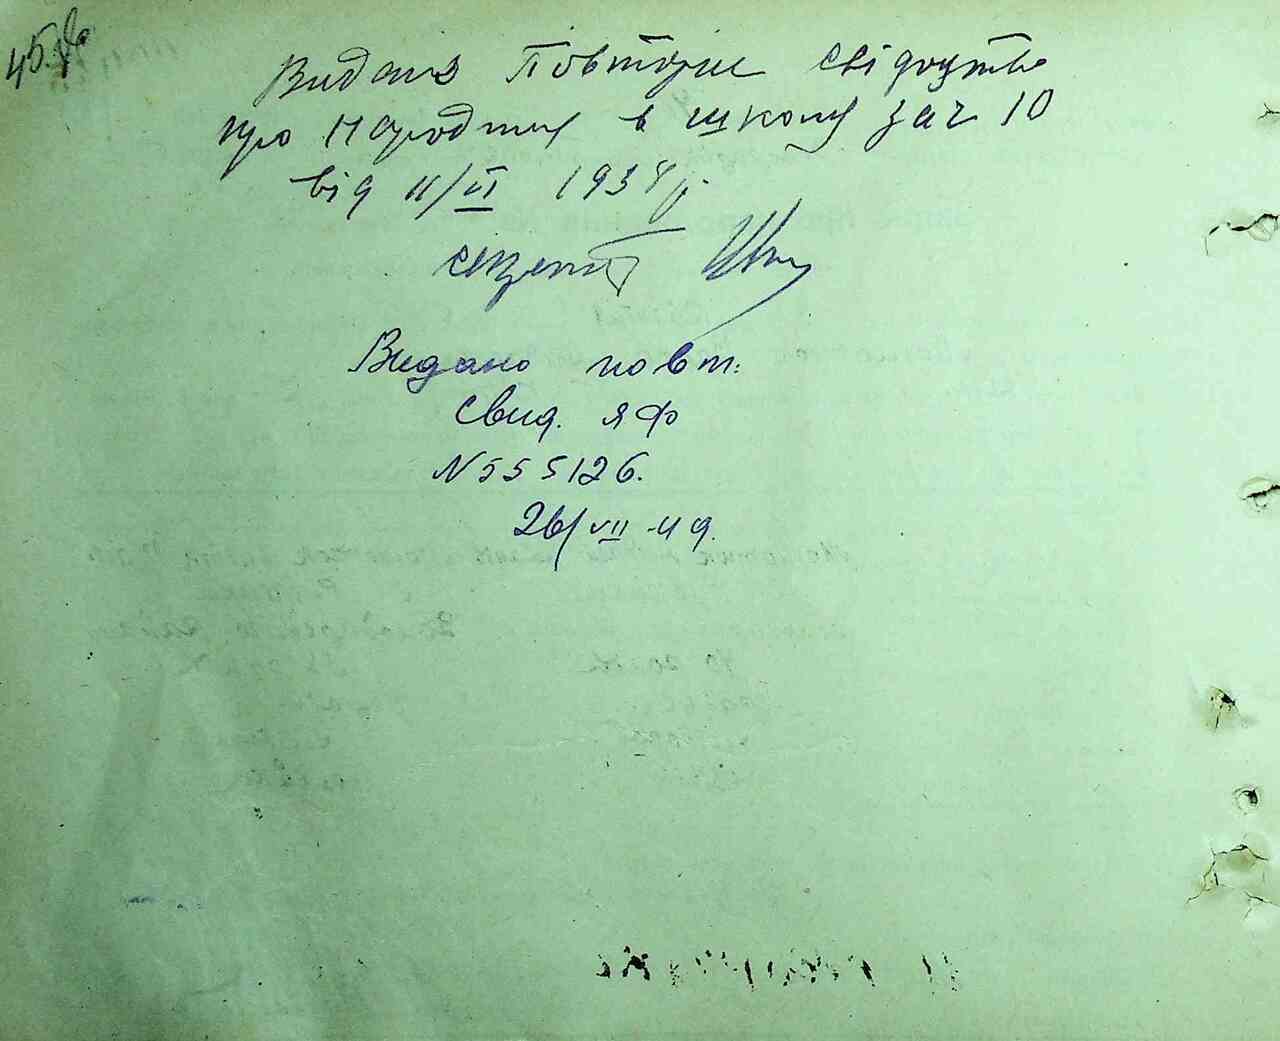 45
Видано Повторне свідоцтво
про Народження в школу за ч 10
від 11/VI 1934 р.
секретар
Видано повт.
Свид. ЯФ
N 555126.
26/VII-49.